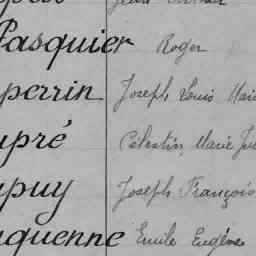 Pasquier Roger
perrin Joseph Louis Mari
upré Célestin Marie Ju
upuy Joseph François
uquenne Emile Eugène